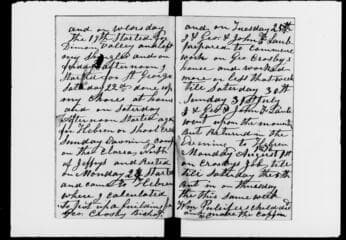 and on Wensday
the 17th Started for
Dimon Valley and left
my Shingles and on
friday afternoon
Started for St George
Saturday 22nd done up
my Chores at home
and on Saturday
Afternoon Started again
for Hebron on Shoal Creek
Sunday Evening camped
on the Claras Ranch
of Jeffrys and Rested
on Monday 24 Started
and came to Hebron
where I calculated
to put up a building for
Geo. Crosby Bishop
and on Tuesday 25th
J & Geo & John F Laub
prepared to commence
work on Geo Crosbys
house and worked
more or less that week
till Saturday 30th
Sunday 31st July
J & Geo & John F Laub
went upon the mountain
But Returned in the
Evening to Hebron
Monday August 1st
on Crosbys Job till
till Saturday the
But in on thursday
the this Same week
Wm Pulsifers child died
on & made the coffin